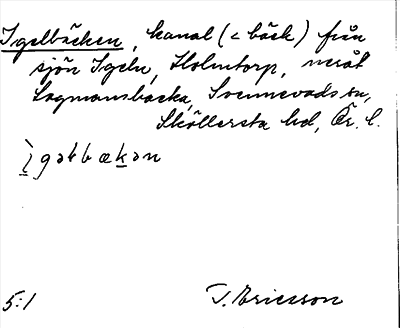 Igelbäcken, kanal (< bäck) från
sjön Igeln, Holmtorp, neråt
Lagmansbacka, Svennevads sn,
Sköllersta hd, Ör. l.
5:1 T. Ericsson